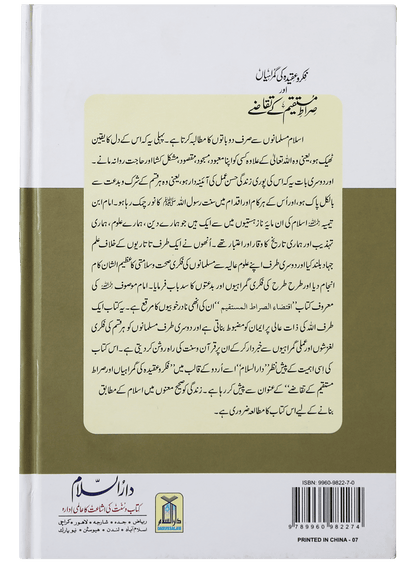 فکر و عقیدہ کی گمراہیاں
اور
صراط مستقیم کے تقاضے
اسلام مسلمانوں سے صرف دو باتوں کا مطالبہ کرتا ہے۔ پہلی یہ کہ اس کے دل کا یقین
ٹھیک ہو، یعنی وہ اللہ تعالیٰ کے علاوہ کسی کو اپنا معبود، مسجود، مقصود، مشکل کشا اور حاجت روا نہ مانے۔
اور دوسری بات یہ کہ اس کی پوری زندگی حسن عمل کی آئینہ دار ہو، یعنی وہ ہر قسم کے شرک و بدعت سے
بالکل پاک ہو، اور اُس کے ہر کام اور اقدام میں سنت رسول اللہ ﷺ کا نور جھلک رہا ہو۔ امام ابن
تیمیہ رحمہ اللہ اسلام کی ان مایہ ناز ہستیوں میں سے ایک ہیں جو ہمارے دین، ہمارے علوم، ہماری
تہذیب اور ہماری تاریخ کا وقار اور اعتبار تھے۔ اُنھوں نے ایک طرف تاتاریوں کے خلاف علم
جہاد بلند کیا اور دوسری طرف اپنے علوم عالیہ سے مسلمانوں کی فکری صحت و سلامتی کا عظیم الشان کام
انجام دیا اور طرح طرح کی فکری گمراہیوں اور بدعتوں کا سدباب فرمایا۔ امام موصوف رحمہ اللہ کی
معروف کتاب "اقتضاء الصراط المستقیم" ان کی انھی نادر خوبیوں کا مرقع ہے۔ یہ کتاب ایک
طرف اللہ کی ذات عالی پر ایمان کو مضبوط بناتی ہے اور دوسری طرف مسلمانوں کو ہر قسم کی فکری
لغزشوں اور عملی گمراہیوں سے خبردار کر کے ان پر قرآن و سنت کی راہ روشن کر دیتی ہے۔ اس کتاب
کی اِسی اہمیت کے پیش نظر "دارالسلام" اسے اُردو کے قالب میں "فکر و عقیدہ کی گمراہیاں اور صراط
مستقیم کے تقاضے" کے عنوان سے پیش کر رہا ہے۔ زندگی کو صحیح معنوں میں اسلام کے مطابق
بنانے کے لیے اس کتاب کا مطالعہ ضروری ہے۔
دارالسلام
کتاب و سنت کی اشاعت کا عالمی ادارہ
ریاض • جدہ • شارجہ • لاہور • کراچی
اسلام آباد • لندن • ہیوسٹن • نیو یارک
دارالسلام
ISBN: 9960-9822-7-0
9 789960 982274
PRINTED IN CHINA - 07